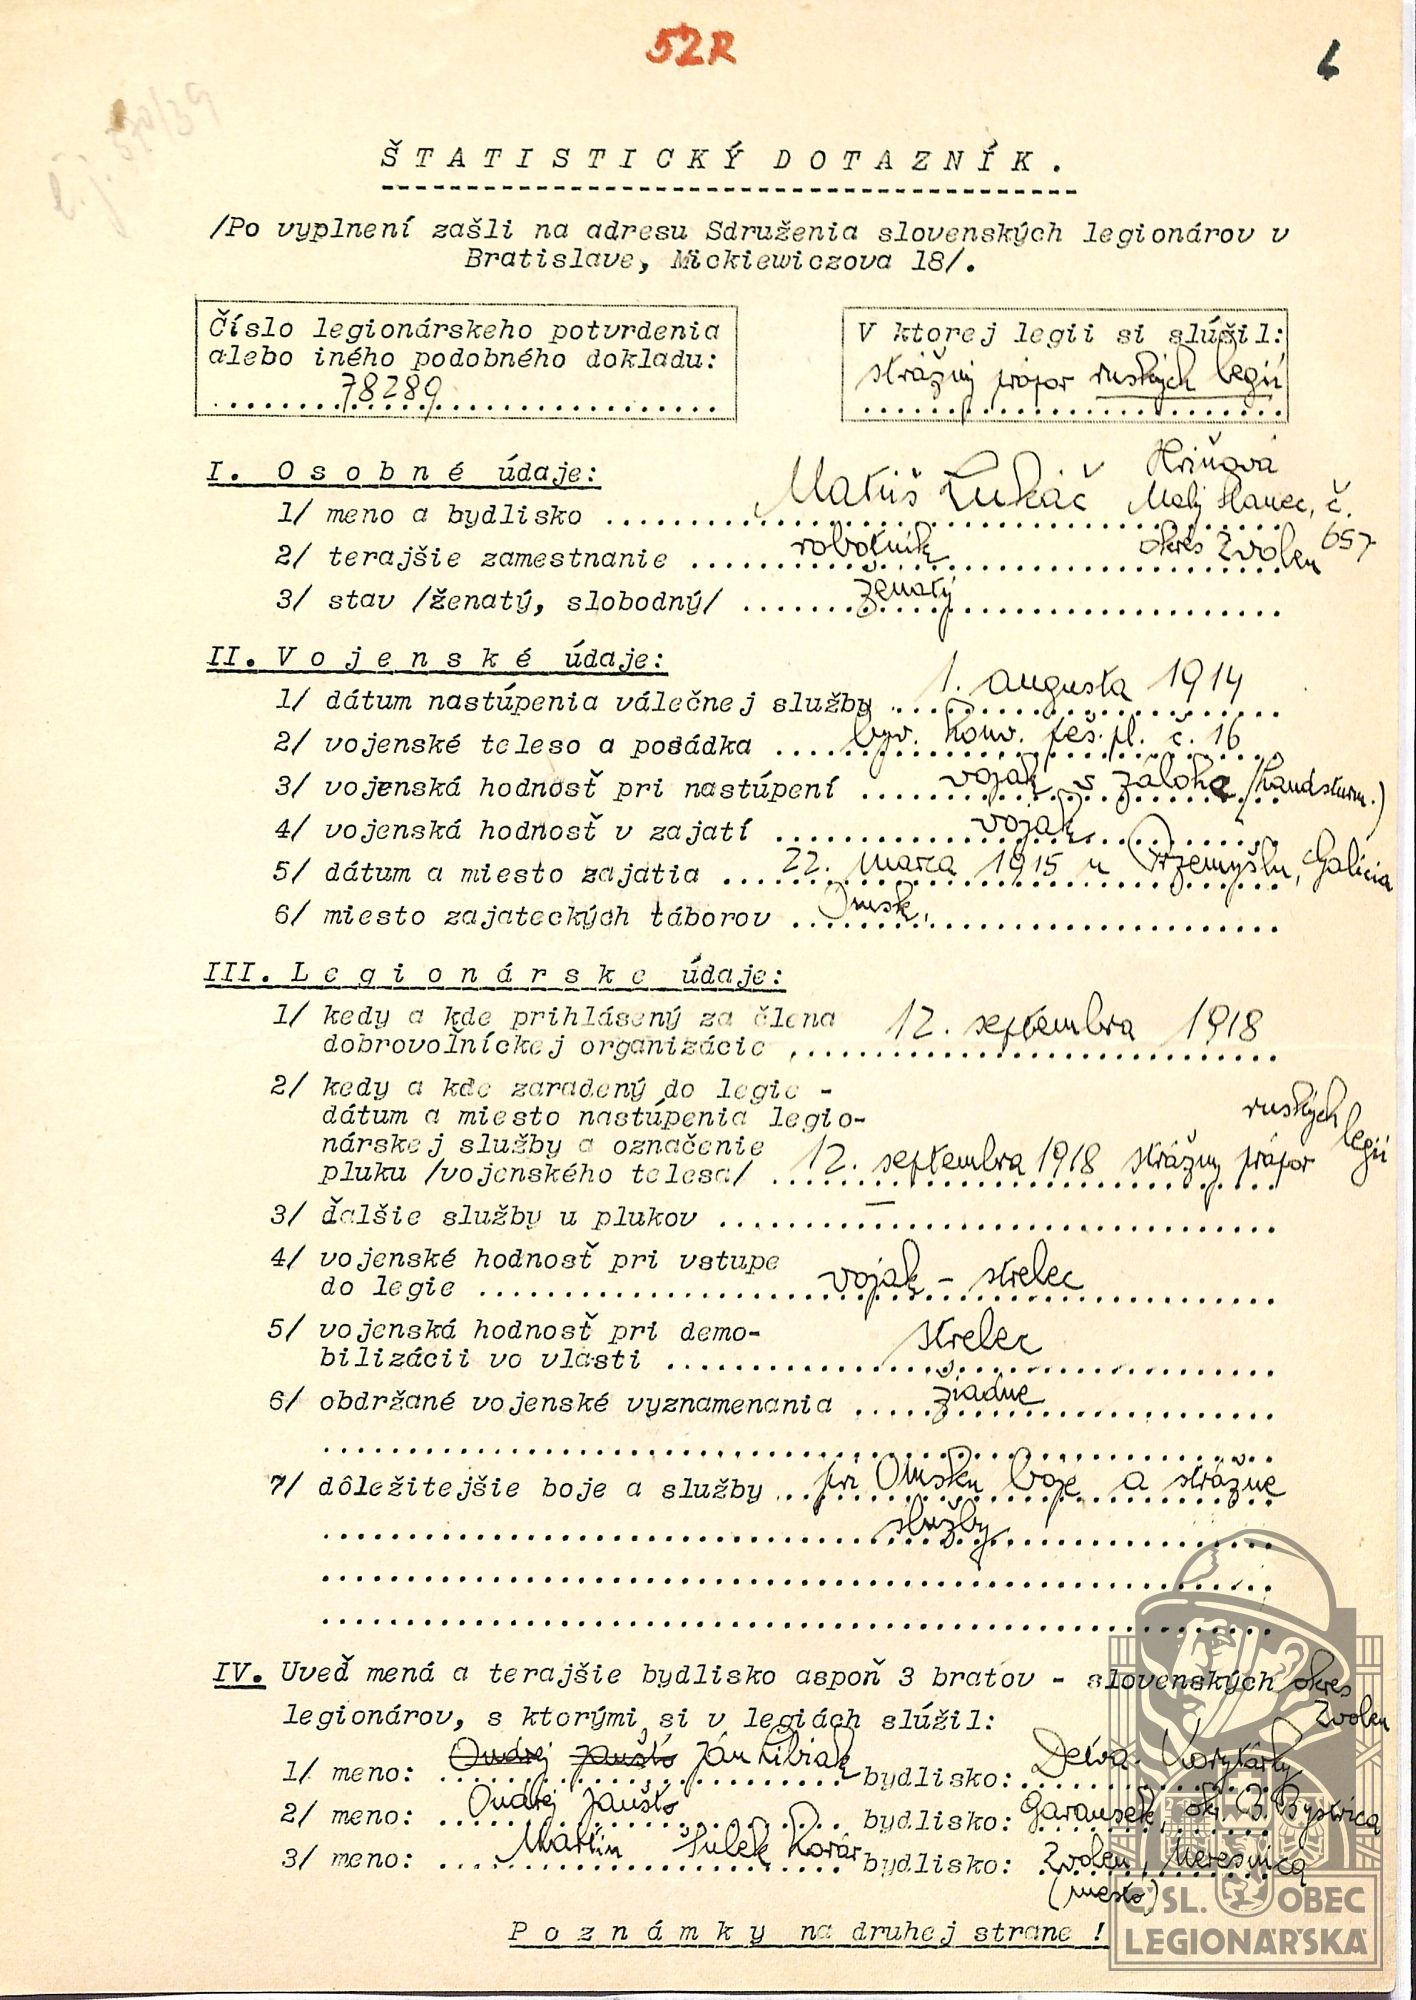 52R
Š T A T I S T I C K Ý D O T A Z N Í K .
/Po vyplnení zašli na adresu Sdruženia slovenských legionárov v
Bratislave, Mickiewiczova 18/.
Číslo legionárskeho potvrdenia
alebo iného podobného dokladu:
78289
V ktorej legii si slúšil:
strážny prápor ruských legií
I. O s o b n é údaje:
Hriňová
1/ meno a bydlisko Matúš Lukáč Malý Slanec, č.
657
2/ terajšie zamestnanie robotník okres Zvolen
3/ stav /ženatý, slobodný/ ženatý
II. V o j e n s k é údaje:
1/ dátum nastúpenia válečnej služby 1. augusta 1914
2/ vojenské teleso a posádka býv. honv. peš. pl. č. 16
3/ vojenská hodnosť pri nastúpení vojak v zálohe (Landsturm.)
4/ vojenská hodnosť v zajatí vojak
5/ dátum a miesto zajatia 22. marca 1915 u Przemyšlu, Galicia
6/ miesto zajateckých táborov Omsk,
III. L e g i o n á r s k e údaje:
1/ kedy a kde prihlásený za člena
dobrovoľníckej organizácie 12. septembra 1918
2/ kedy a kde zaradený do legie -
dátum a miesto nastúpenia legio-
nárskej služby a označenie
pluku /vojenského telesa/ 12. septembra 1918 strážny prápor ruských legií
3/ ďalšie služby u plukov –
4/ vojenské hodnosť pri vstupe
do legie vojak – strelec
5/ vojenská hodnosť pri demo-
bilizácii vo vlasti strelec
6/ obdržané vojenské vyznamenania žiadne
7/ dôležitejšie boje a služby pri Omsku boje a strážne
služby
IV. Uveď mená a terajšie bydlisko aspoň 3 bratov - slovenských
legionárov, s ktorými si v legiách slúžil:
okres
Zvolen
1/ meno: Ondrej Jaušto Ján Libiak bydlisko: Detva
2/ meno: Ondrej Jaušto bydlisko: Garamsek, ok. B. Bystrica
3/ meno: Martin Šulek Kovár bydlisko: Zvolen,
(mesto)
P o z n á m k y na druhej strane !
Č.SL. OBEC
LEGIONÁŘSKÁ